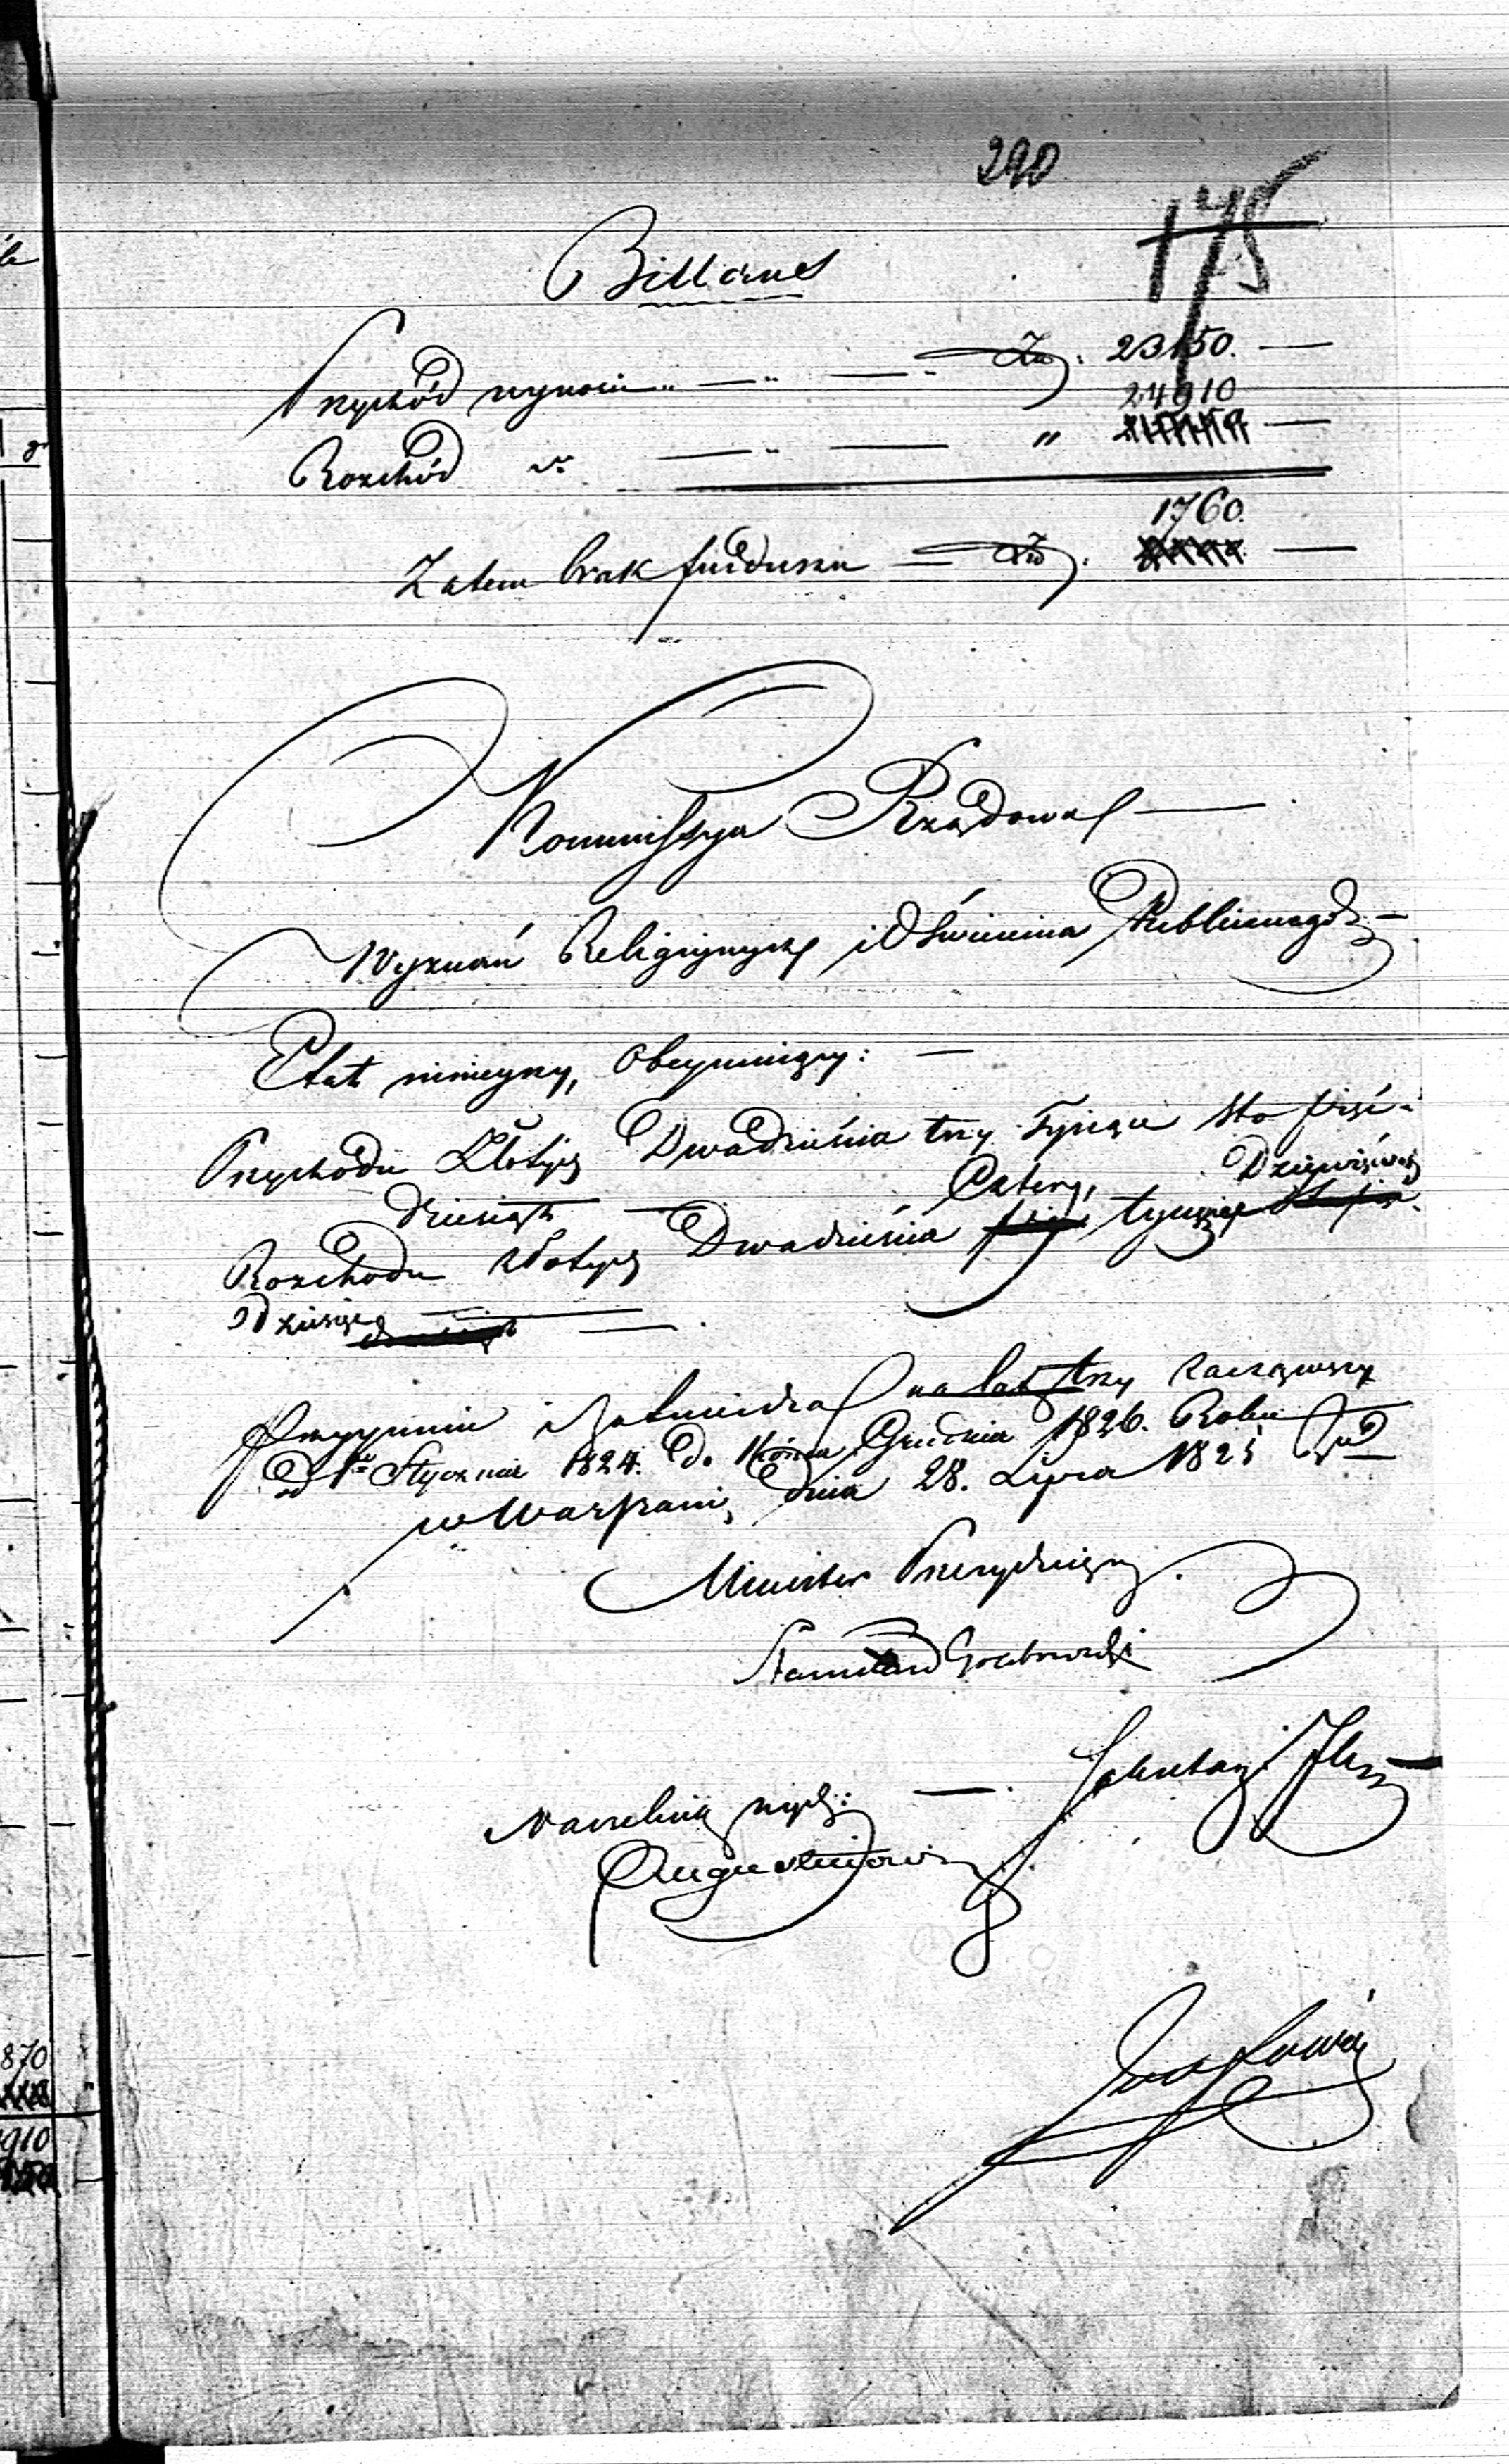 290
175
Billans
Przychód wynosi „ — „ — „ Złp: 23150. —
24910
Rozchód „ — „ — „ —
1760.
Zatem brak funduszu — Złp: —
Kommissya Rządowa —
Wyznań Religiynych i Oświecenia Publicznego —
Etat ninieyszy, obeymuiący: —
Przychodu Złotych Dwadzieścia trzy Tysiące sto pięć-
dziesiąt —
Cztery, Dziewięćset
Rozchodu Złotych Dwadzieścia tysiące
Dziesięć —
Przyymuie i zatwierdza na lat trzy zacząwszy
od 1go Stycznia 1824. do Końca Grudnia 1826. Roku
w Warszawie dnia 28. Lipca 1825
Minister Prezyduiący.
Stanisław Grabowski
Sekretarz Jlny
Naczelnik wydz:
870
910